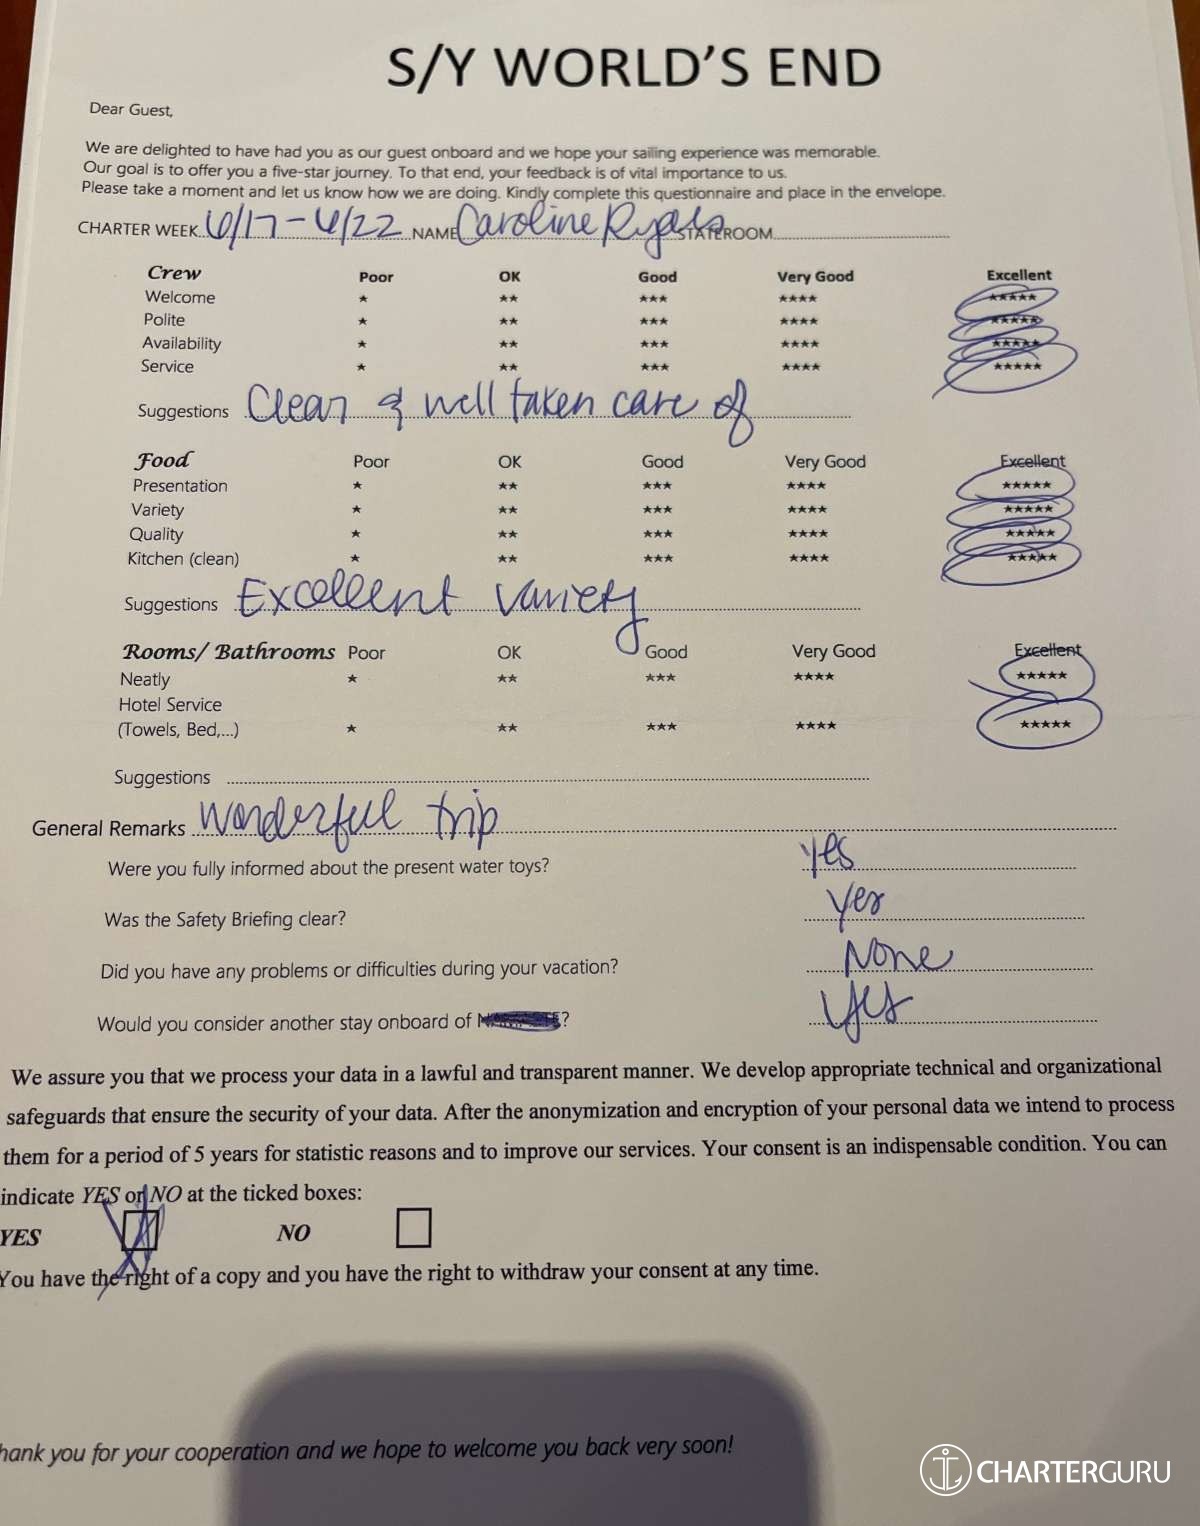 S/Y WORLD'S END
Dear Guest,
We are delighted to have had you as our guest onboard and we hope your sailing experience was memorable.
Our goal is to offer you a five-star journey. To that end, your feedback is of vital importance to us.
Please take a moment and let us know how we are doing. Kindly complete this questionnaire and place in the envelope.
CHARTER WEEK 6/17-6/22 NAME Caroline Ryals STATEROOM
Crew Poor OK Good Very Good Excellent
Welcome ★ ★★ ★★★ ★★★★ ★★★★★
Polite ★ ★★ ★★★ ★★★★ ★★★★★
Availability ★ ★★ ★★★ ★★★★ ★★★★★
Service ★ ★★ ★★★ ★★★★ ★★★★★
Suggestions Clean & well taken care of
Food Poor OK Good Very Good Excellent
Presentation ★ ★★ ★★★ ★★★★ ★★★★★
Variety ★ ★★ ★★★ ★★★★ ★★★★★
Quality ★ ★★ ★★★ ★★★★ ★★★★★
Kitchen (clean) ★ ★★ ★★★ ★★★★ ★★★★★
Suggestions Excellent variety
Rooms/ Bathrooms Poor OK Good Very Good Excellent
Neatly ★ ★★ ★★★ ★★★★ ★★★★★
Hotel Service
(Towels, Bed,...) ★ ★★ ★★★ ★★★★ ★★★★★
Suggestions
General Remarks Wonderful trip
Were you fully informed about the present water toys? yes
Was the Safety Briefing clear? yes
Did you have any problems or difficulties during your vacation? None
Would you consider another stay onboard of ? yes
We assure you that we process your data in a lawful and transparent manner. We develop appropriate technical and organizational
safeguards that ensure the security of your data. After the anonymization and encryption of your personal data we intend to process
them for a period of 5 years for statistic reasons and to improve our services. Your consent is an indispensable condition. You can
indicate YES or NO at the ticked boxes:
YES NO
You have the right of a copy and you have the right to withdraw your consent at any time.
hank you for your cooperation and we hope to welcome you back very soon!
CHARTERGURU